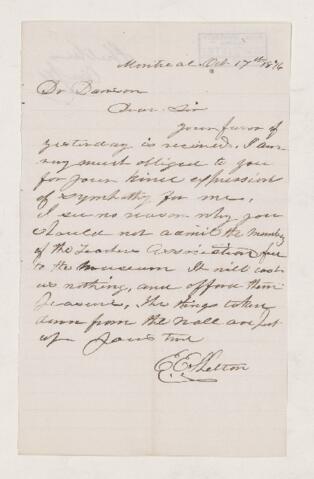 Montreal Oct 17th 1876
Dr Dawson
Dear Sir
your favor of
yesterday is received. I am
very much obliged to you
for your kind expression
of sympathy for me.
I see no reason why you
should not admit the members
of the Teachers Association free
to the museum It will cost
us nothing, and afford them
pleasure, The things taken
down from the wall are put
up Yours true
E. E. Shelton